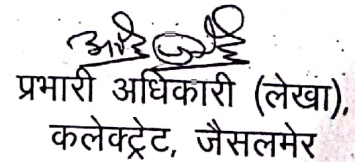 प्रभारी अधिकारी (लेखा),
कलेक्ट्रेट, जैसलमेर